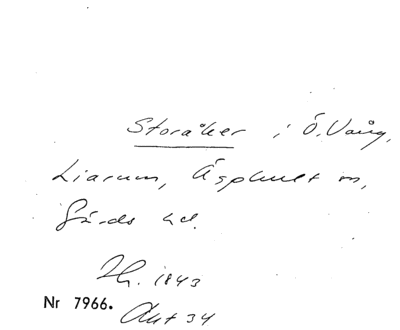 Storåker i Ö. Vång,
Liarum, Äsphult sn,
Gärds hd.
Lh. 1843
Nr 7966.
Akt 34